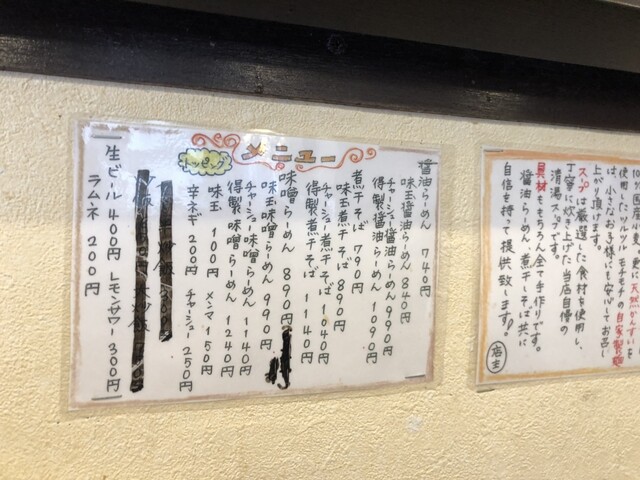 メニュー
醤油らーめん 740円
味玉醤油らーめん 840円
チャーシュー醤油らーめん 990円
得製醤油らーめん 1090円
煮干そば 790円
味玉煮干そば 890円
チャーシュー煮干そば 1040円
得製煮干そば 1140円
味噌らーめん 890円
味玉味噌らーめん 990円
チャーシュー味噌らーめん 1140円
得製味噌らーめん 1240円
トッピング
味玉 100円 メンマ 150円
辛ネギ 200円 チャーシュー 250円
生ビール 400円 レモンサワー 300円
ラムネ 200円
使用したツルツルモチモチの自家製麺
は、小さなお子様にも安心してお召し
上がり頂けます。
スープは厳選した食材を使用し、
丁寧に炊き上げた当店自慢の
清湯スープです。
具材ももちろん全て手作りです。
醤油らーめん、煮干しそば共に
自信を持って提供致します!
店主